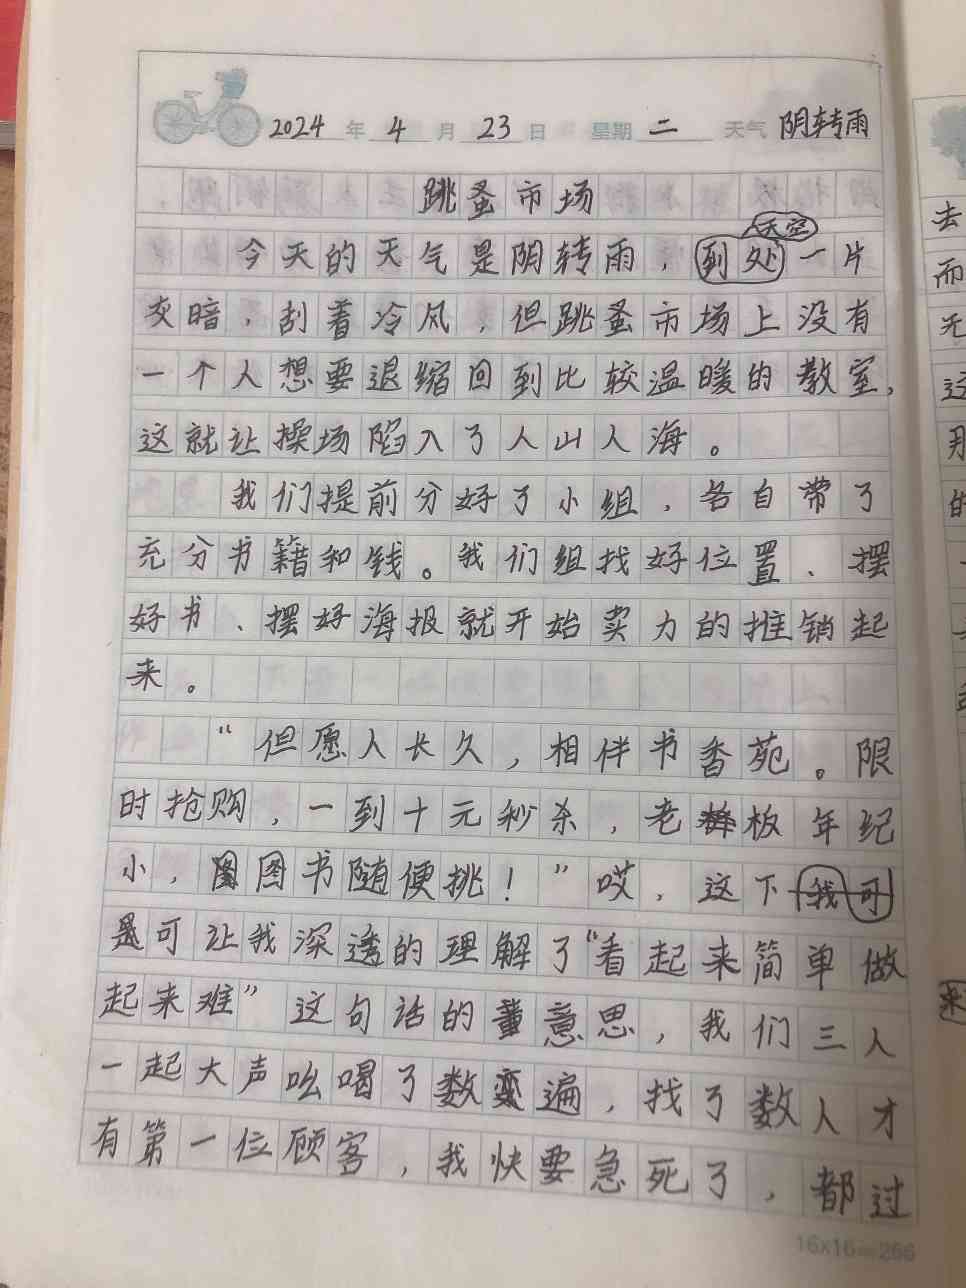 2024年4月23日 星期二 天气 阴转雨
跳蚤市场
天空
今天的天气是阴转雨，到处一片
灰暗，刮着冷风，但跳蚤市场上没有
一个人想要退缩回到比较温暖的教室，
这就让操场陷入了人山人海。
我们提前分好了小组，各自带了
充分书籍和钱。我们组找好位置、摆
好书、摆好海报就开始卖力的推销起
来。
“但愿人长久，相伴书香苑。限
时抢购，一到十元秒杀，老板年纪
小，图书随便挑！”哎，这下我可
是可让我深透的理解了“看起来简单做
起来难”这句话的意思，我们三人
一起大声吆喝了数遍，找了数人才
有第一位顾客，我快要急死了，都过
16x16=266
去
而
无
这
用
的
来